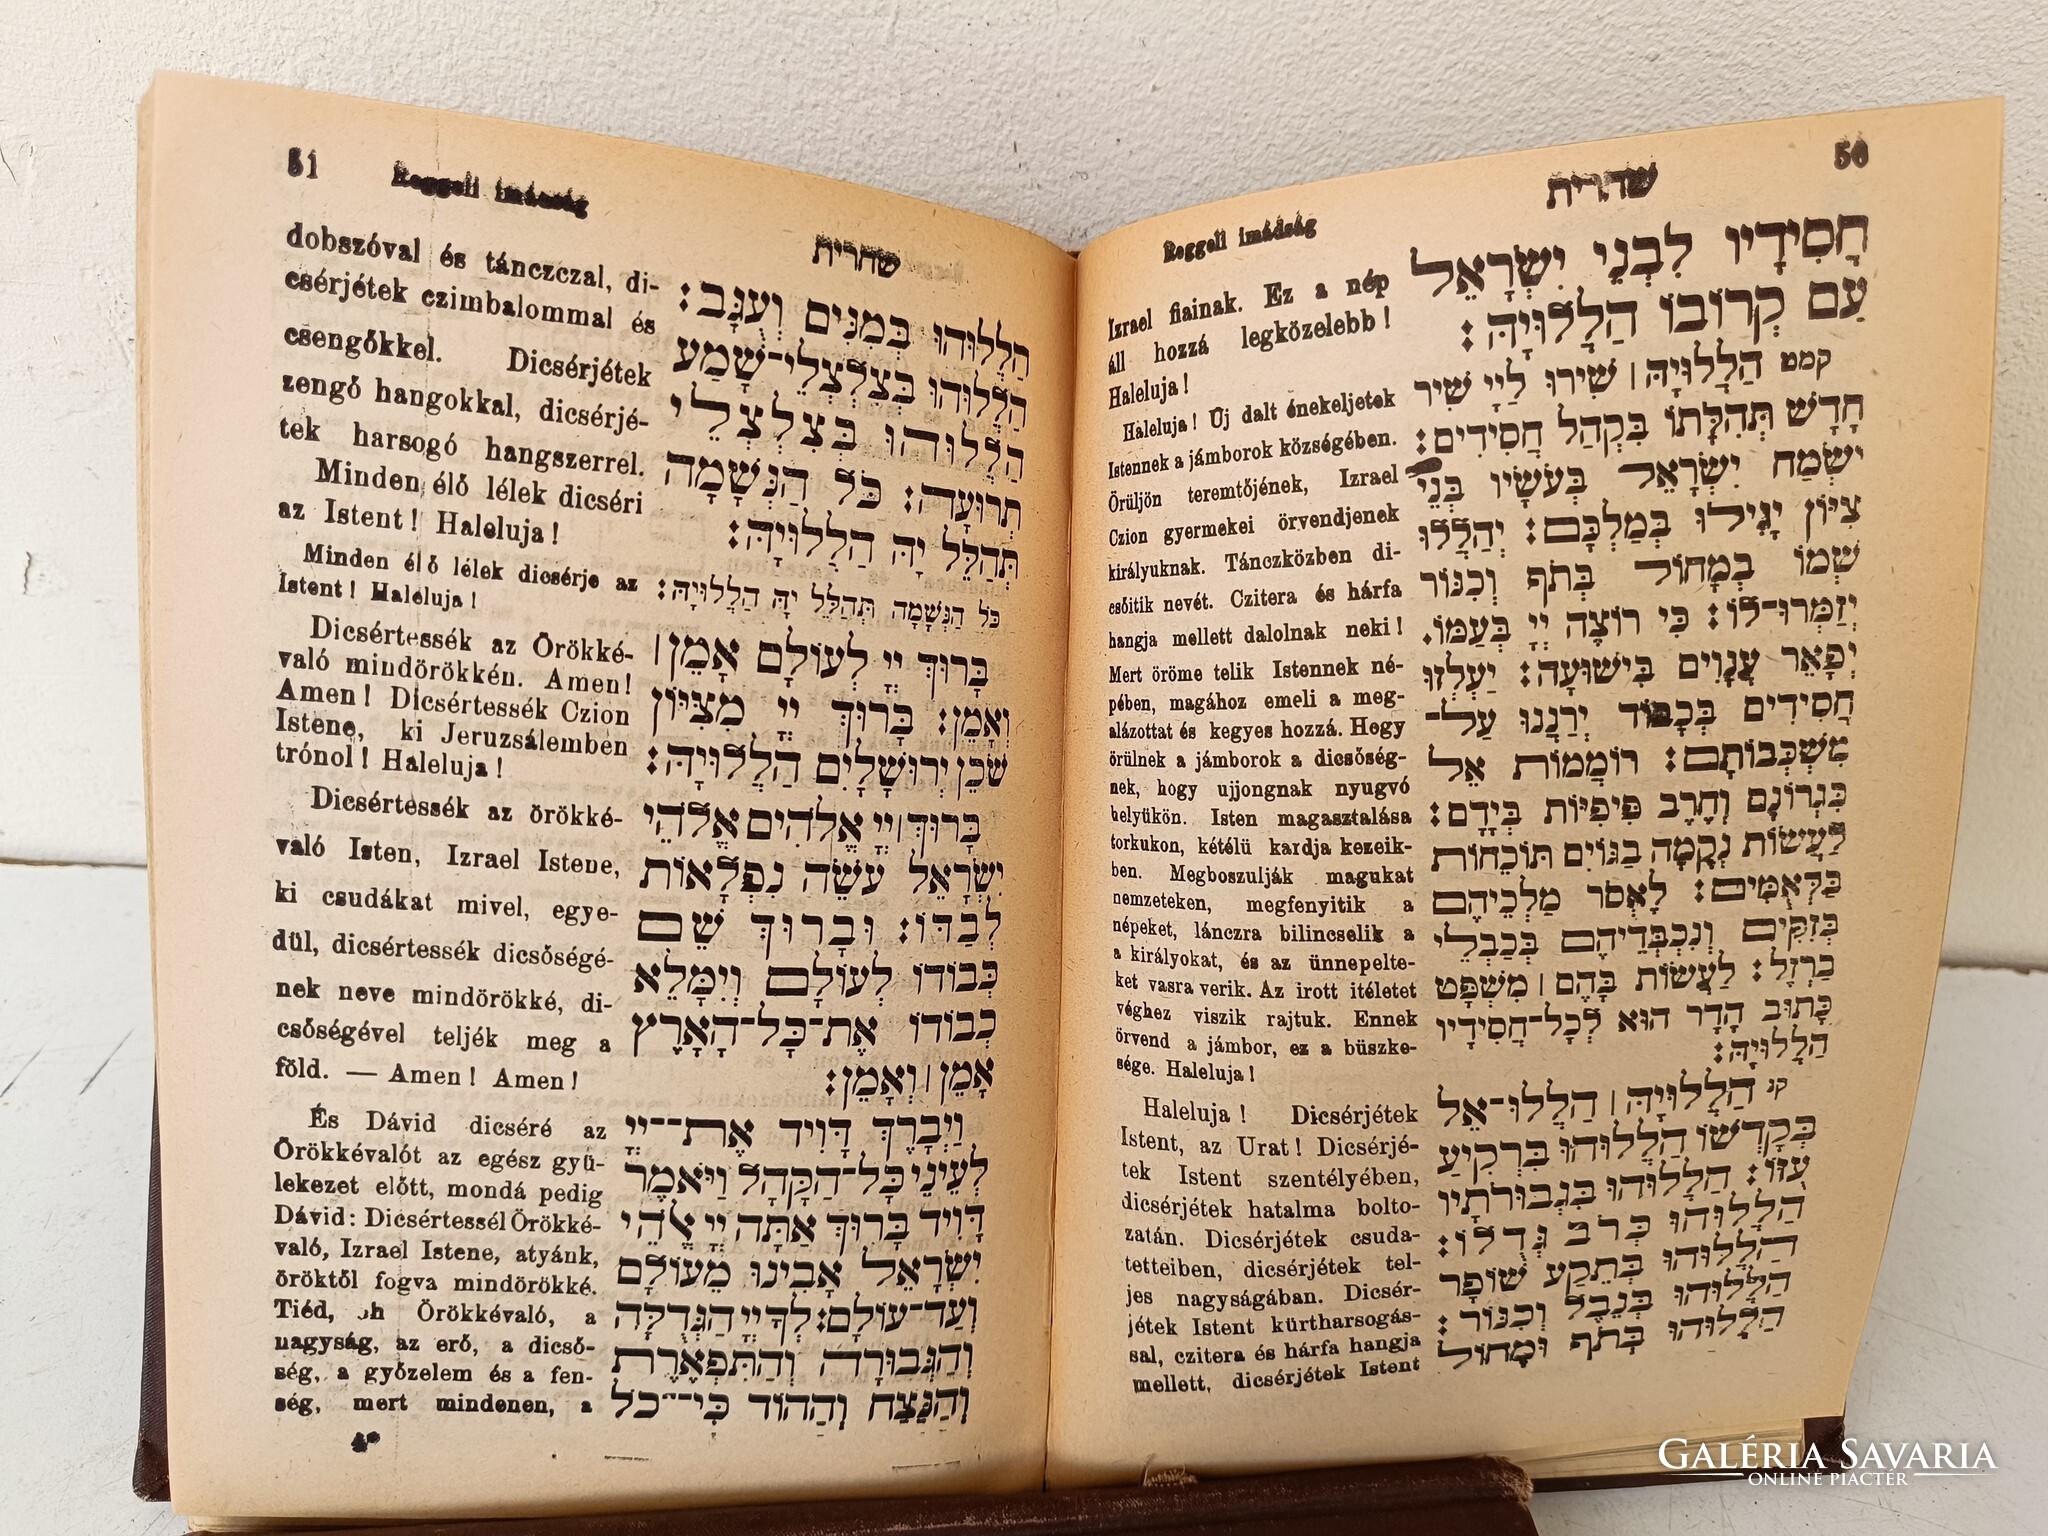 50
שחרית
Reggeli imádság
חֲסִידָיו לִבְנֵי יִשְׂרָאֵל
עַם קְרוֹבוֹ הַלְלוּיָהּ:
קמט הַלְלוּיָהּ׀ שִׁירוּ לַיָי שִׁיר
חָדָשׁ תְּהִלָּתוֹ בִּקְהַל חֲסִידִים:
יִשְׂמַח יִשְׂרָאֵל בְּעֹשָׂיו בְּנֵי
צִיּוֹן יָגִילוּ בְמַלְכָּם: יְהַלְלוּ
שְׁמוֹ בְמָחוֹל בְּתֹף וְכִנּוֹר
יְזַמְּרוּ־לוֹ: כִּי רוֹצֶה יְיָ בְּעַמּוֹ.
יְפָאֵר עֲנָוִים בִּישׁוּעָה: יַעְלְזוּ
חֲסִידִים בְּכָבוֹד יְרַנְּנוּ עַל־
מִשְׁכְּבוֹתָם: רוֹמְמוֹת אֵל
בִּגְרוֹנָם וְחֶרֶב פִּיפִיּוֹת בְּיָדָם:
לַעֲשׂוֹת נְקָמָה בַּגּוֹיִם תּוֹכֵחוֹת
בַּלְאֻמִּים: לֶאְסֹר מַלְכֵיהֶם
בְּזִקִּים וְנִכְבְּדֵיהֶם בְּכַבְלֵי
בַרְזֶל: לַעֲשׂוֹת בָּהֶם׀ מִשְׁפָּט
כָּתוּב הָדָר הוּא לְכָל־חֲסִידָיו
הַלְלוּיָהּ:
קנ הַלְלוּיָהּ׀ הַלְלוּ־אֵל
בְּקָדְשׁוֹ הַלְלוּהוּ בִּרְקִיעַ
עֻזּוֹ: הַלְלוּהוּ בִגְבוּרֹתָיו
הַלְלוּהוּ כְּרֹב גֻּדְלוֹ:
הַלְלוּהוּ בְּתֵקַע שׁוֹפָר
הַלְלוּהוּ בְּנֵבֶל וְכִנּוֹר:
הַלְלוּהוּ בְתֹף וּמָחוֹל
Izrael fiainak. Ez a nép
áll hozzá legközelebb!
Haleluja!
Haleluja! Új dalt énekeljetek
Istennek a jámborok községében.
Örüljön teremtőjének, Izrael
Czion gyermekei örvendjenek
királyuknak. Tánczközben di-
csőitik nevét. Czitera és hárfa
hangja mellett dalolnak neki!
Mert öröme telik Istennek né-
pében, magához emeli a meg-
alázottat és kegyes hozzá. Hegy
örülnek a jámborok a dicsőség-
nek, hogy ujjongnak nyugvó
helyükön. Isten magasztalása
torkukon, kétélü kardja kezeik-
ben. Megboszulják magukat
nemzeteken, megfenyitik a
népeket, lánczra bilincselik a
a királyokat, és az ünnepelte-
ket vasra verik. Az irott itéletet
véghez viszik rajtuk. Ennek
örvend a jámbor, ez a büszke-
sége. Haleluja!
Haleluja! Dicsérjétek
Istent, az Urat! Dicsérjé-
tek Istent szentélyében,
dicsérjétek hatalma bolto-
zatán. Dicsérjétek csuda-
tetteiben, dicsérjétek tel-
jes nagyságában. Dicsér-
jétek Istent kürtharsogás-
sal, czitera és hárfa hangja
mellett, dicsérjétek Istent
51
Reggeli imádság
שחרית
הַלְלוּהוּ בְּמִנִּים וְעֻגָב:
הַלְלוּהוּ בְצִלְצְלֵי־שָׁמַע
הַלְלוּהוּ בְּצִלְצְלֵי
תְרוּעָה: כֹּל הַנְּשָׁמָה
תְּהַלֵּל יָהּ הַלְלוּיָהּ:
כֹּל הַנְּשָׁמָה תְּהַלֵּל יָהּ הַלְלוּיָהּ:
בָּרוּךְ יְיָ לְעוֹלָם אָמֵן׀
וְאָמֵן: בָּרוּךְ יְיָ מִצִּיּוֹן
שֹׁכֵן יְרוּשָׁלָיִם הַלְלוּיָהּ:
בָּרוּךְ׀ יְיָ אֱלֹהִים אֱלֹהֵי
יִשְׂרָאֵל עֹשֵׂה נִפְלָאוֹת
לְבַדּוֹ: וּבָרוּךְ שֵׁם
כְּבוֹדוֹ לְעוֹלָם וְיִמָּלֵא
כְבוֹדוֹ אֶת־כָּל־הָאָרֶץ
אָמֵן׀ וְאָמֵן:
וַיְבָרֶךְ דָּוִיד אֶת־יְיָ
לְעֵינֵי כָּל־הַקָּהָל וַיֹּאמֶר
דָּוִיד בָּרוּךְ אַתָּה יְיָ אֱלֹהֵי
יִשְׂרָאֵל אָבִינוּ מֵעוֹלָם
וְעַד־עוֹלָם: לְךָ יְיָ הַגְּדֻלָּה
וְהַגְּבוּרָה וְהַתִּפְאֶרֶת
וְהַנֵּצַח וְהַהוֹד כִּי־כֹל
dobszóval és tánczczal, di-
csérjétek czimbalommal és
csengőkkel. Dicsérjétek
zengő hangokkal, dicsérjé-
tek harsogó hangszerrel.
Minden élő lélek dicséri
az Istent! Haleluja!
Minden élő lélek dicsérje az
Istent! Haleluja!
Dicsértessék az Örökké-
való mindörökkén. Amen!
Amen! Dicsértessék Czion
Istene, ki Jeruzsálemben
trónol! Haleluja!
Dicsértessék az örökké-
való Isten, Izrael Istene,
ki csudákat mivel, egye-
dül, dicsértessék dicsőségé-
nek neve mindörökké, di-
csőségével teljék meg a
föld. — Amen! Amen!
És Dávid dicséré az
Örökkévalót az egész gyü-
lekezet előtt, mondá pedig
Dávid: Dicsértessél Örökké-
való, Izrael Istene, atyánk,
öröktől fogva mindörökké.
Tiéd, oh Örökkévaló, a
nagyság, az erő, a dicső-
ség, a győzelem és a fen-
ség, mert mindenen, a
4*
GALÉRIA SAVARIA
ONLINE PIACTÉR